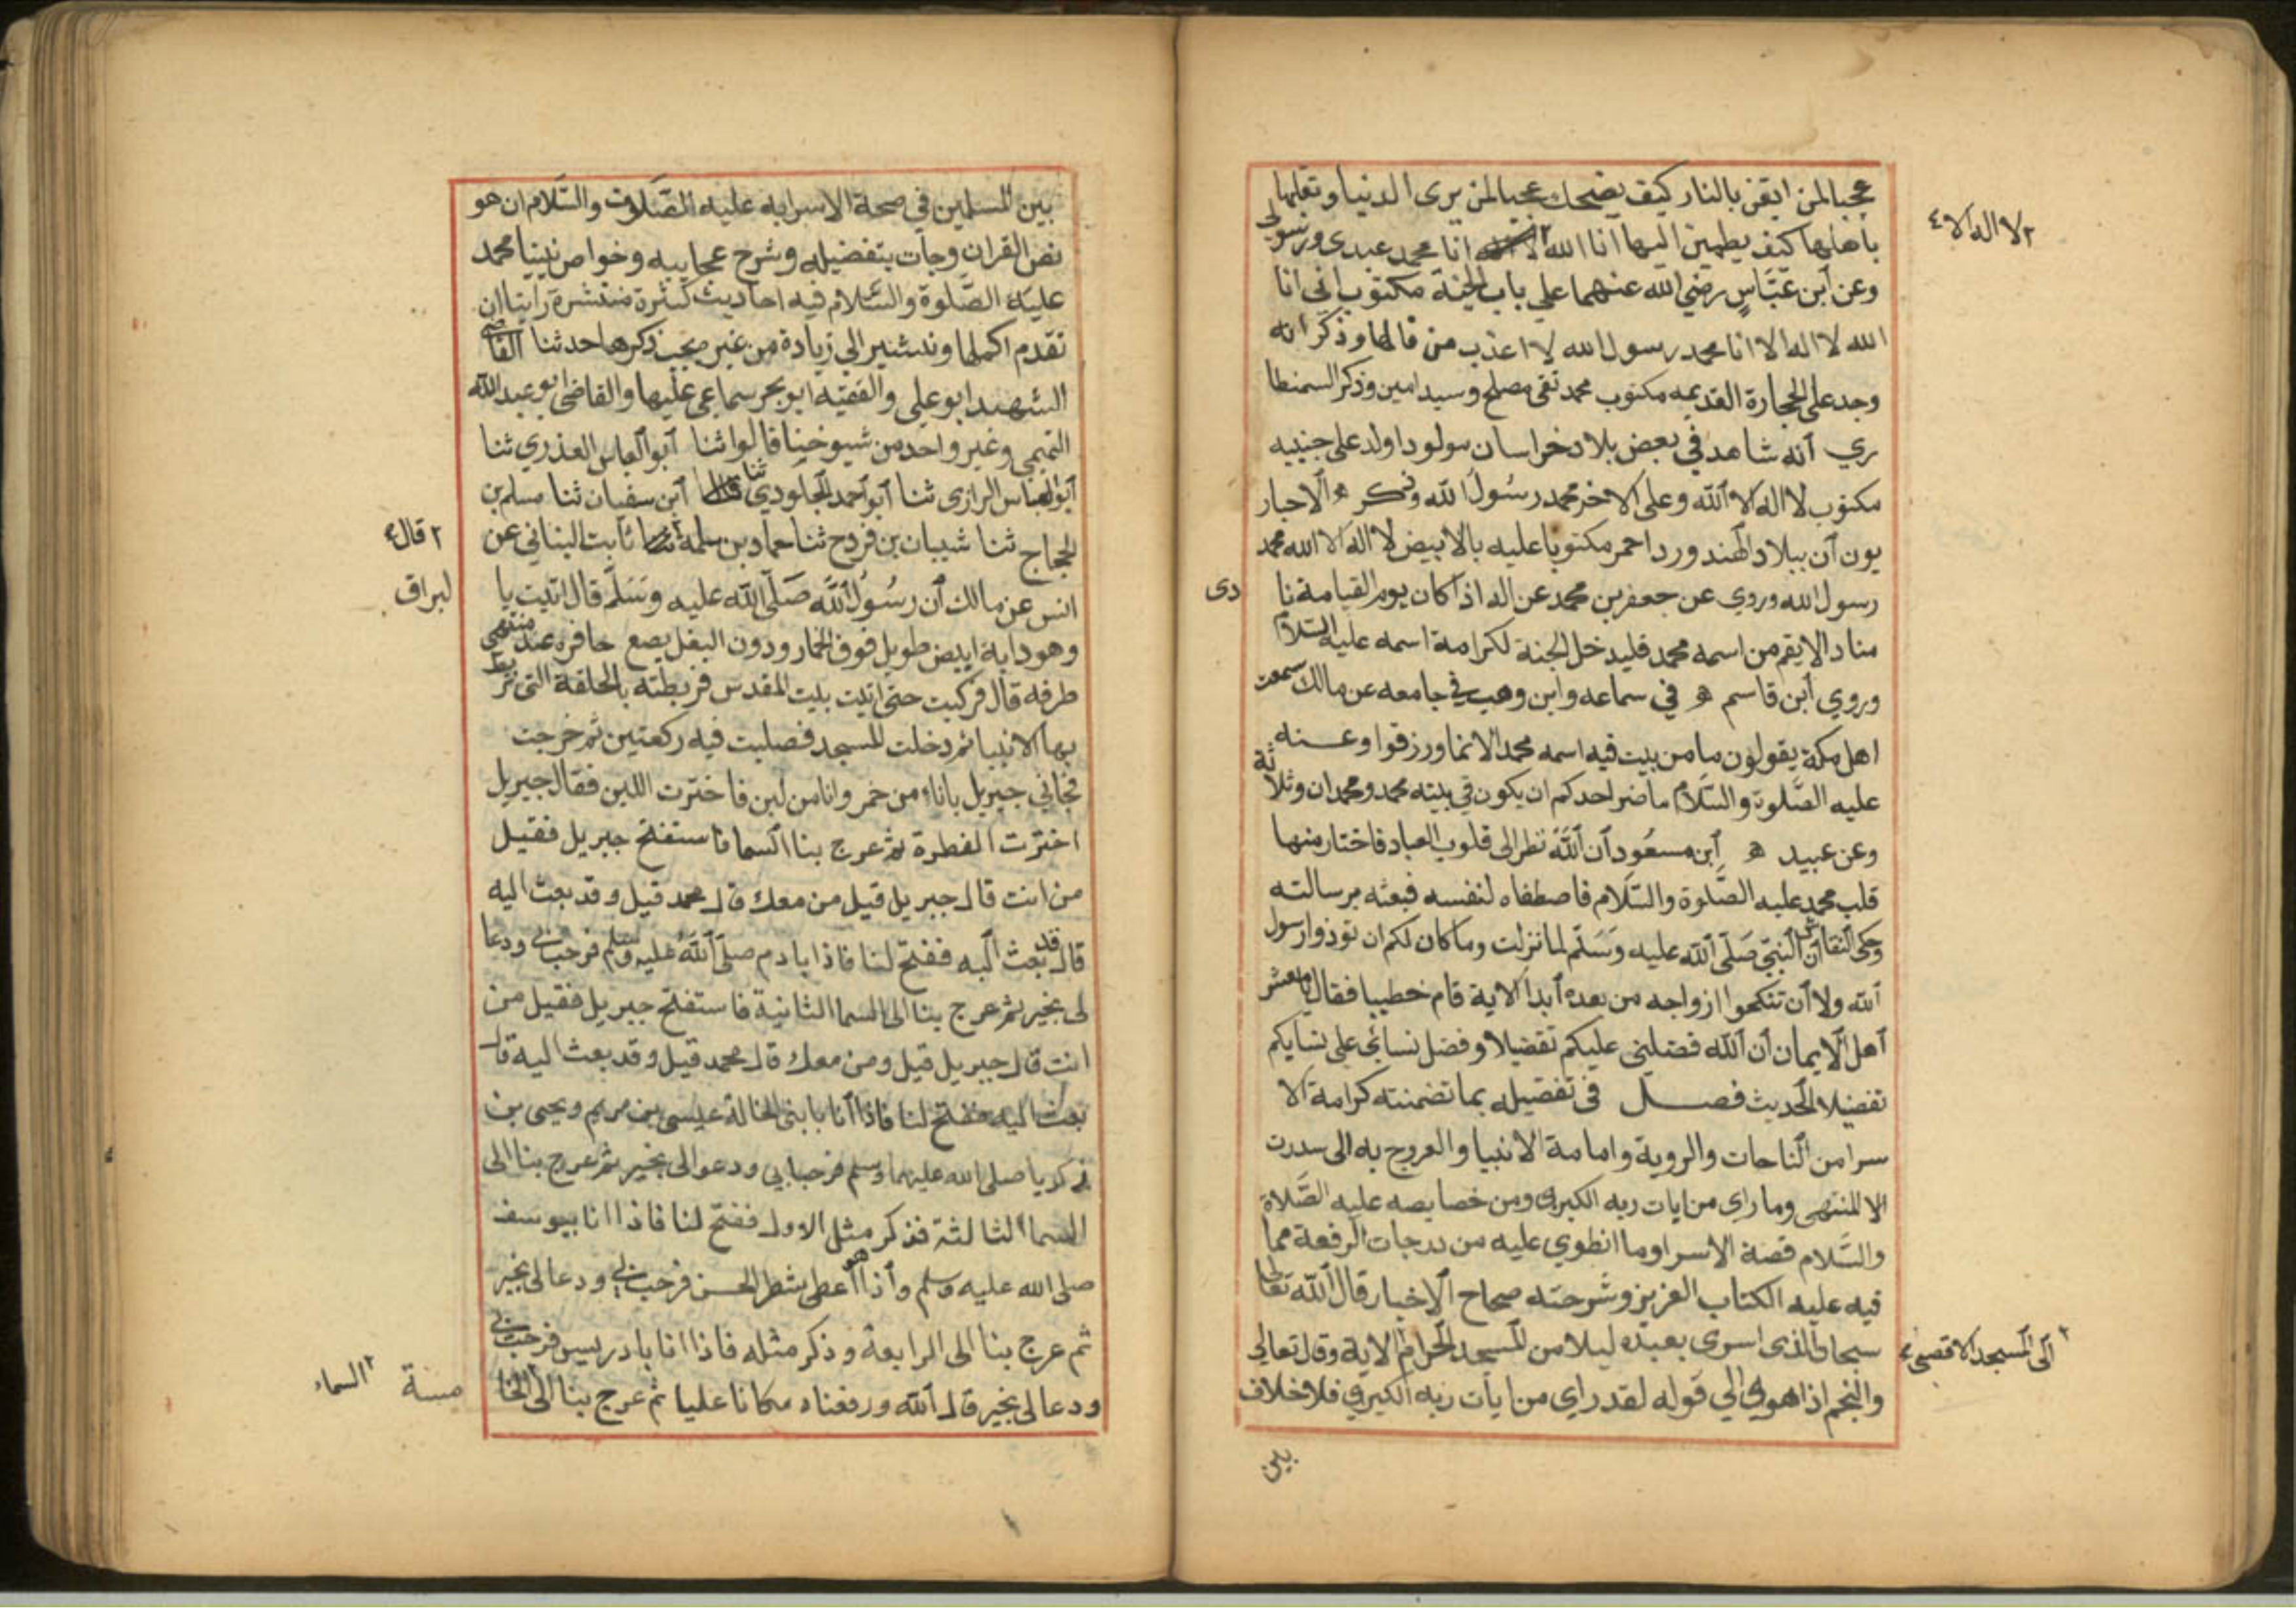 عجبا لمن ايقن بالنار كيف يضحك عجبا لمن يرى الدنيا وتقلبها
باهلها كيف يطمين اليها انا الله لا انا محمد عبدي ورسولي
٢ لا اله الا ٤
وعن ابن عَبَّاسٍ رضي الله عنهما علي باب الجنة مكتوب اني انا
الله لا اله الا انا محمد رسول الله لا اعذب من قالها وذكر انه
وجد علي الحجارة القديمه مكتوب محمد تقى مصلح وسيد امين وذكر السمنطا
ري انه شاهد في بعض بلاد خراسان مولودا ولد على جنبيه
مكتوب لا اله الا الله وعلى الاخر محمد رسُولُ الله وذكر ه الاحبار
يون ان ببلاد الهند وردا احمر مكتوبا عليه بالابيض لا اله الا الله محمد
رسول الله وروي عن جعفر بن محمد عن اله اذا كان يوم القيامة نا
دى
مناد الا يقم من اسمه محمد فليدخل الجنة لكرامة اسمه عليه السلام
وروي ابن قاسم ه في سماعه وابن وهب في جامعه عن مالك سمعت
اهل مكة يقولون ما من بيت فيه اسمه محمد الا نما ورزقوا وعنه
عليه الصَّلوة والسَّلام ما ضر احدكم ان يكون في بيته محمد ومحمدان وثلاثة
وعن عبيد ه ابن مسعُود ان اللَّه نظر الى قلوب العباد فاختار منها
قلب محمد عليه الصَّلوة والسَّلام فاصطفاه لنفسه فبعثه برسالته
وحكى النقاش ان النبيّ صَلّى الله عليه وَسَلّم لما نزلت وما كان لكم ان توذوا رسول
الله ولا ان تنكحوا ازواجه من بعده ابدا الاية قام خطيبا فقال يا معشر
اهل الايمان ان الله فضلني عليكم تفضيلا وفضل نسائي على نسايكم
تفضيلا الحديث فصل في تفضيله بما تضمنته كرامة الا
سرا من الناجات والروية وامامة الانبيا والعروج به الى سدرت
الا المنتهى وما راي من ايات ربه الكبرى ومن خصايصه عليه الصَّلاة
والسَّلام قصة الاسرا وما انطوي عليه من درجات الرفعة مما
فيه عليه الكتاب العزيز وشرحته صحاح الاخبار قال الله تعالى
سبحان الذى اسرى بعبده ليلا من المسجد الحرام الاية وقال تعالي
٢ الى المسجد الاقصى ٤
والنجم اذا هوى الي قوله لقد راي من ايات ربه الكبري فلا خلاف
بين
بين المسلمين في صحة الاسرا به عليه الصَّلوة والسَّلام ان هو
نص القران وجات بتفضيله وشرح عجايبه وخواص نبينا محمد
عليه الصَّلوة والسَّلام فيه احاديث كثيرة منتشرة راينا ان
نقدم اكملها ونشير الي زيادة من غير يجب ذكرها حدثنا القاضي
الشهيد ابو علي والفقيه ابو بحر سماعي عليها والقاضي ابو عبد الله
التميمي وغير واحد من شيوخنا قالوا ثنا ابو العباس العذري ثنا
ابو العباس الرازي ثنا ابو احمد الجلودي ثنا ابن سفيان ثنا مسلم بن
الحجاج ثنا شيبان بن فروح ثنا حماد بن سلمة ثابت البناني عن
٢ قال ٤
انس عن مالك ان رسُولُ اللَّه صَلّى الله عليه وَسَلّم قال اتيت با
لبراق
وهو دابة ابيض طويل فوق الحمار ودون البغل يضع حافره عند منتهى
طرفه قال فركبت حتى اتيت بيت المقدس فربطته بالحلقة التي تربط
بها الانبيا ثم دخلت المسجد فصليت فيه ركعتين ثم خرجت
فجاني جبريل باناء من خمر وانا من لبن فاخترت اللبن فقال جبريل
اخترت الفطرة ثم عرج بنا السما فاستفتح جبريل فقيل
من انت قال جبريل قيل من معك قال محمد قيل وقد بعث اليه
قال قد بعث اليه ففتح لنا فاذا بادم صلّى اللَّهُ عليه وسلم فرحب بي ودعا
لى بخير ثم عرج بنا الى السما الثانية فاستفتح جبريل فقيل من
انت قال جبريل قيل ومن معك قال محمد قيل وقد بعث اليه قال
بعث اليه ففتح لنا فاذا انا بابنى الخالة عيسى بن مريم ويحيى بن
زكريا صلى الله عليهما وسلم فرحبا بي ودعوا لى بخير ثم عرج بنا الى
السما الثالثة فذكر مثل الاول ففتح لنا فاذا انا بيوسف
صلى الله عليه وسلم واذا هو اعطى شطر الحسن فرحب بي ودعا لى بخير
ثم عرج بنا الى الرابعة وذكر مثله فاذا انا بادريس فرحب بي
ودعا لى بخير قال الله ورفعناه مكانا عليا ثم عرج بنا الى الخا
مسة ٢ السماء